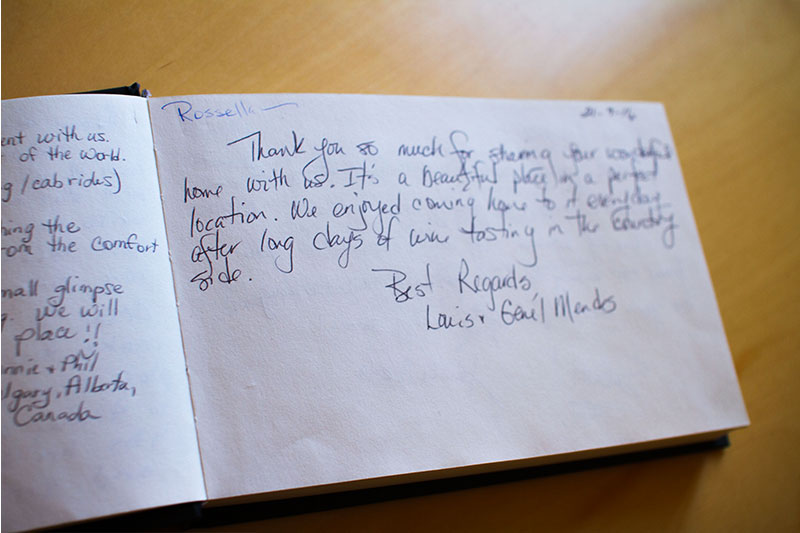 ent with us.
of the world.
g / cab rides)
ing the
om the comfort
mall glimpse
We will
place!!
nnie & Phil
lgary, Alberta,
Canada
Rossella
Thank you so much for sharing your wonderful
home with us. It's a beautiful place in a perfect
location. We enjoyed coming home to it everyday
after long days of wine tasting in the country
side.
Best Regards,
Louis & Mendes